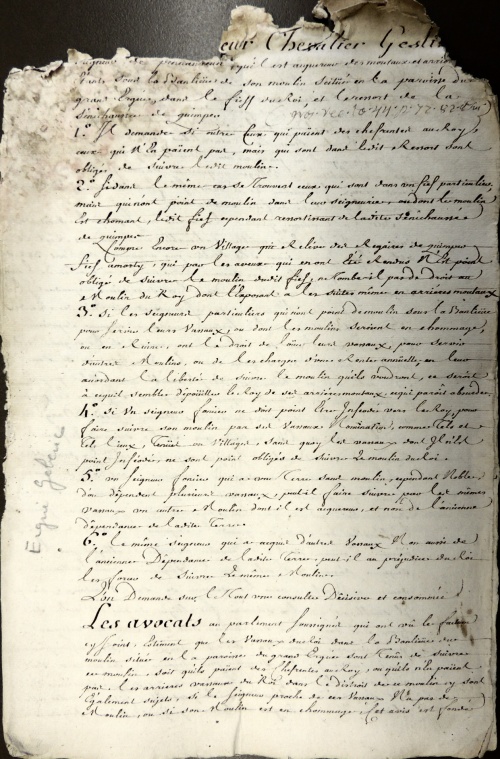 eur Chevalier Gesli
Seigneur de qu'il est aquereur des moutaux et arriere
Vente sous la Banlieue de son moulin scittué en La paroisse du
grand Ergué, dans le fieff du Roi, et le ressort de la
Senechaussée de quimper
1.o Il demande si outre Ceux qui paient des chefrentes au Roy,
ceux qui N'En paient pas, mais qui sont dans ledit Ressort sont
obligé, de suivre ledit moulin.
2.o Si dans le même cas se trouvent ceux qui sont dans un fief particulier,
mais qui n'ont point de moulin dans leur seigneurie, ou dont le moulin
Est chomant, ledit fief cependant ressortissant de ladite Sénéchaussée
de quimper
Comme Encore un Village qui Releve des Regaires de quimper
fief amorty, qui par les aveux qui en ont été Rendus N'Est point
obligé de suivre le moulin dudit fief, ne tombe-il pas de droit au
Moulin du Roy dont l'aponant a les suites même en arrieres moutaux
3.o Si les seigneurs particuliers qui n'ont point de moulin sous la Banlieue
pour servir leurs Vassaux, ou dont les moulins seroient en chommage,
ou en Ruine, ont le droit de faire leurs vassaux, pour se servir
d'autres Moulins, ou de les charger d'une Rente annuelle, en leur
accordant la liberté de suivre le moulin qu'ils voudront, ce seroit
à ce qu'il semble dépoüiller le Roy de ses arrieres moutaux, ce qui paroît absurde.
4.o Si Un seigneur foncier ne doit point être Inféodé vers le Roy, pour
faire suivre son moulin par ses Vassaux Nomination, comme tels et
tels lieux, Tenüe ou Villages, sans quoy les vassaux dont Il n'est
point Inféodé, ne sont point obligés de suivre Le moulin du Roi.
5.o un Seigneur foncier qui a une Terre sans moulin, cependant Noble
d'où dépendent plusieurs vassaux, peut-il faire suivre par les mêmes
vassaux un autre Moulin dont il est aquereur, et non de l'ancienne
dépendance de ladite Terre.
6.o le même seigneur qui a acqué d'autres Vassaux Non aussi de
l'ancienne Dépendance de ladite Terre, peut-il au préjudice du Roi
les forcer de Suivre Le même Moulin.
L'on Demande sur le Tout une consulte Décisive et consommée.
Les avocats au parlement soussignés qui ont vû le factum
cy joint, Estiment que les Vassaux du Roi dans la Banlieue du
moulin situé en la paroisse du grand Ergué sont Tenus de suivre
ce moulin, soit qu'ils paient des Chefrentes au Roy, ou qu'ils n'En paient
pas, les arrieres vassaux du Roi dans le district de ce moulin y sont
Egalement sujets, si le seigneur proche de ces Vassaux N'a pas de
Moulin, ou si son Moulin est en chommage, cet avis est fondé
Ergué Gaberic